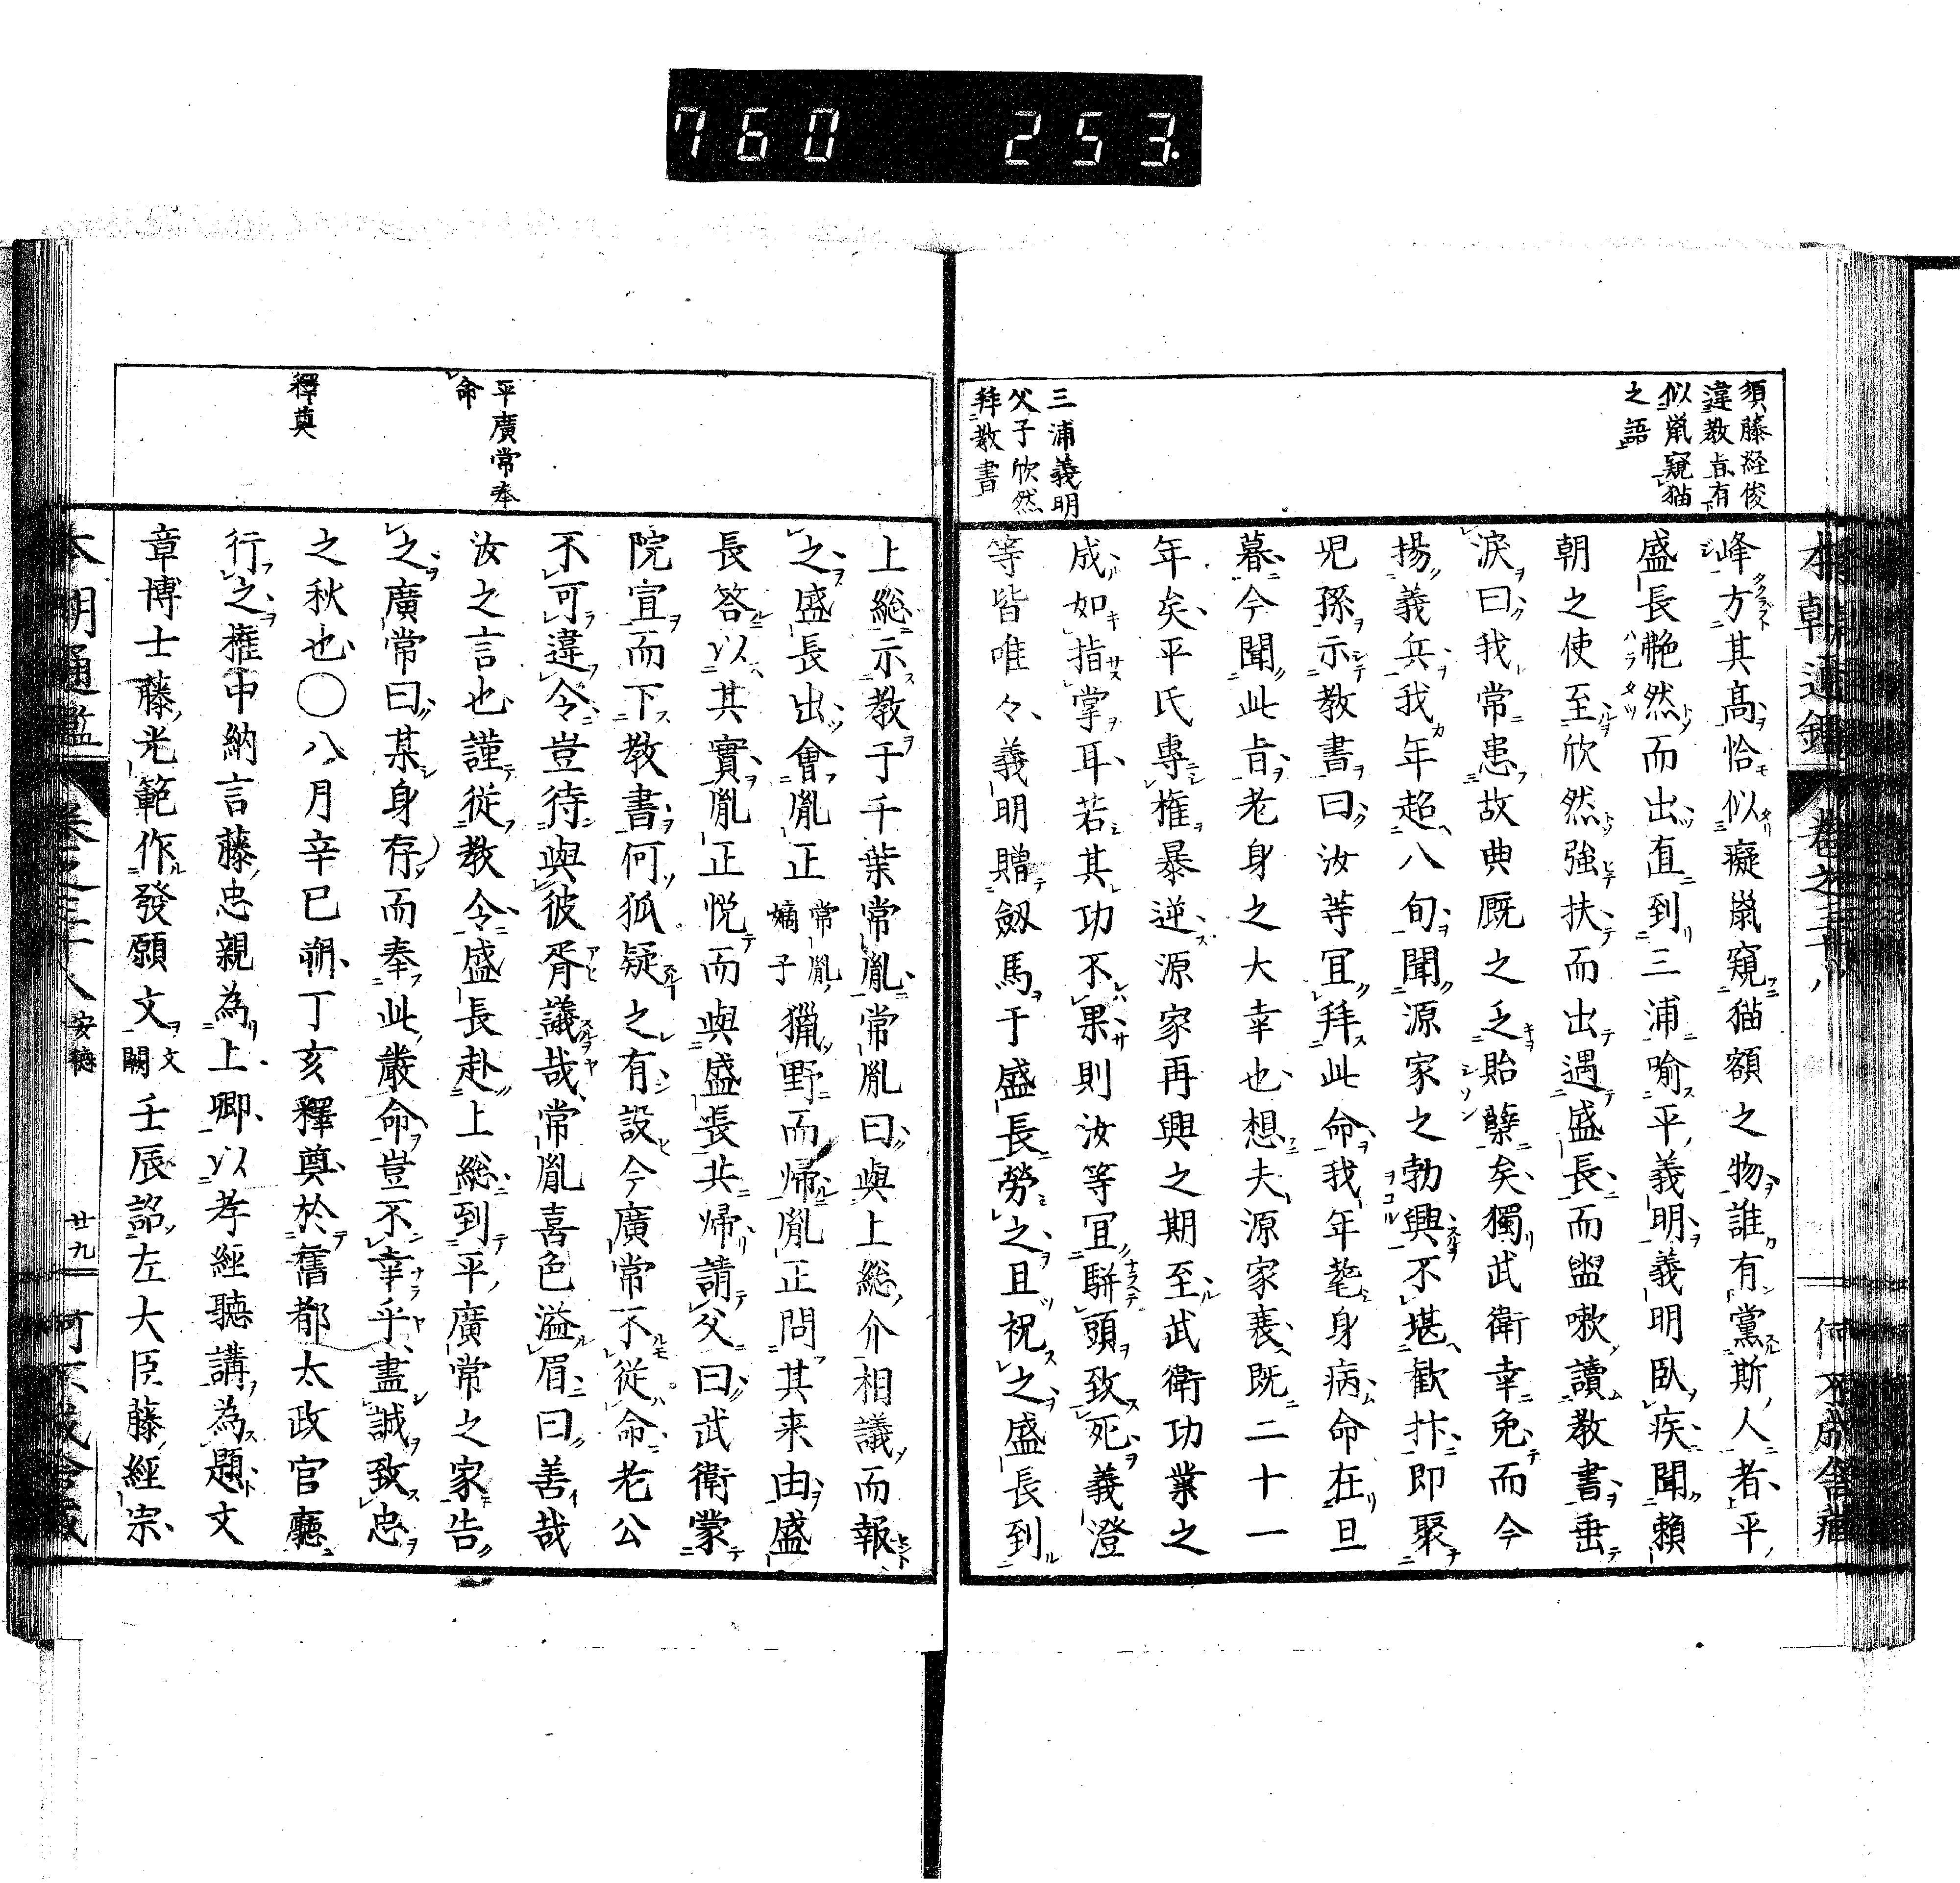 760 253.
本朝通鑑 卷之三十八
須藤経俊
違教㫖有
似鼡窺猫
之語
三浦義明
父子欣然
拜教書
峰方其髙恰似癡鼡窺猫額之物誰有黨斯人者平
盛長艴然而出直到三浦喻平義明義明臥疾聞賴
朝之使至欣然強扶而出遇盛長而盥嗽讀教書垂
淚曰我常患故典厩之乏貽孽矣獨武衛幸免而今
揚義兵我年超八旬聞源家之勃興不堪歡抃即聚
児孫示教書曰汝等冝拜此命我年耄身病命在旦
暮今聞此㫖老身之大幸也想夫源家衰既二十一
年矣平氏專權暴逆源家再興之期至武衛功業之
成如指掌耳若其功不果則汝等冝駢頭致死義澄
等皆唯々義明贈劔馬于盛長勞之且祝之盛長到
平廣常奉
命
釋奠
上総示教于千葉常胤常胤曰與上総介相議而報
之盛長出會胤正常胤嫡子獵野而帰胤正問其来由盛
長答以其實胤正悦而與盛長共帰請父曰武衛蒙
院宣而下教書何狐疑之有設今廣常不從命老公
不可違令豈待與彼胥議哉常胤喜色溢眉曰善哉
汝之言也謹從教令盛長赴上総到平廣常之家告
之廣常曰某身存而奉此嚴命豈不幸乎盡誠致忠
之秋也〇八月辛巳朔丁亥釋奠於舊都太政官廳
行之權中納言藤忠親為上卿以孝經聽講為題文
章博士藤光範作發願文文闕壬辰詔左大臣藤經宗
本朝通鑑 卷之三十八 安德 廿九